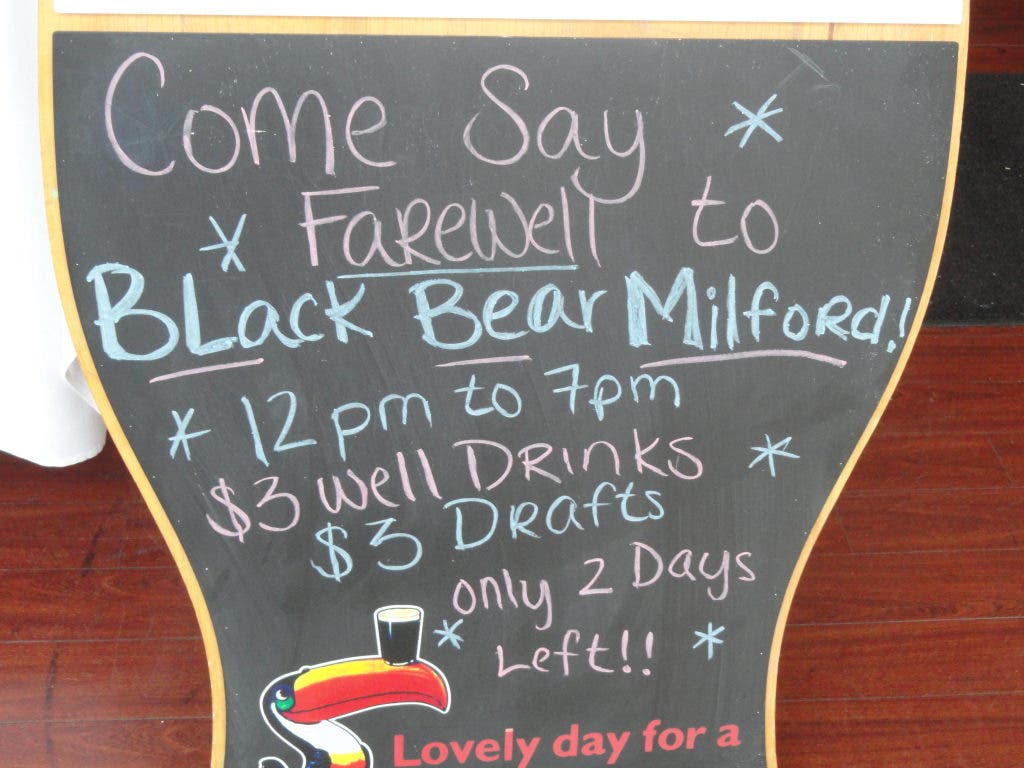 Come Say
Farewell to
Black Bear Milford!
12 pm to 7pm
$3 well Drinks
$3 Drafts
only 2 Days
Left!!
Lovely day for a